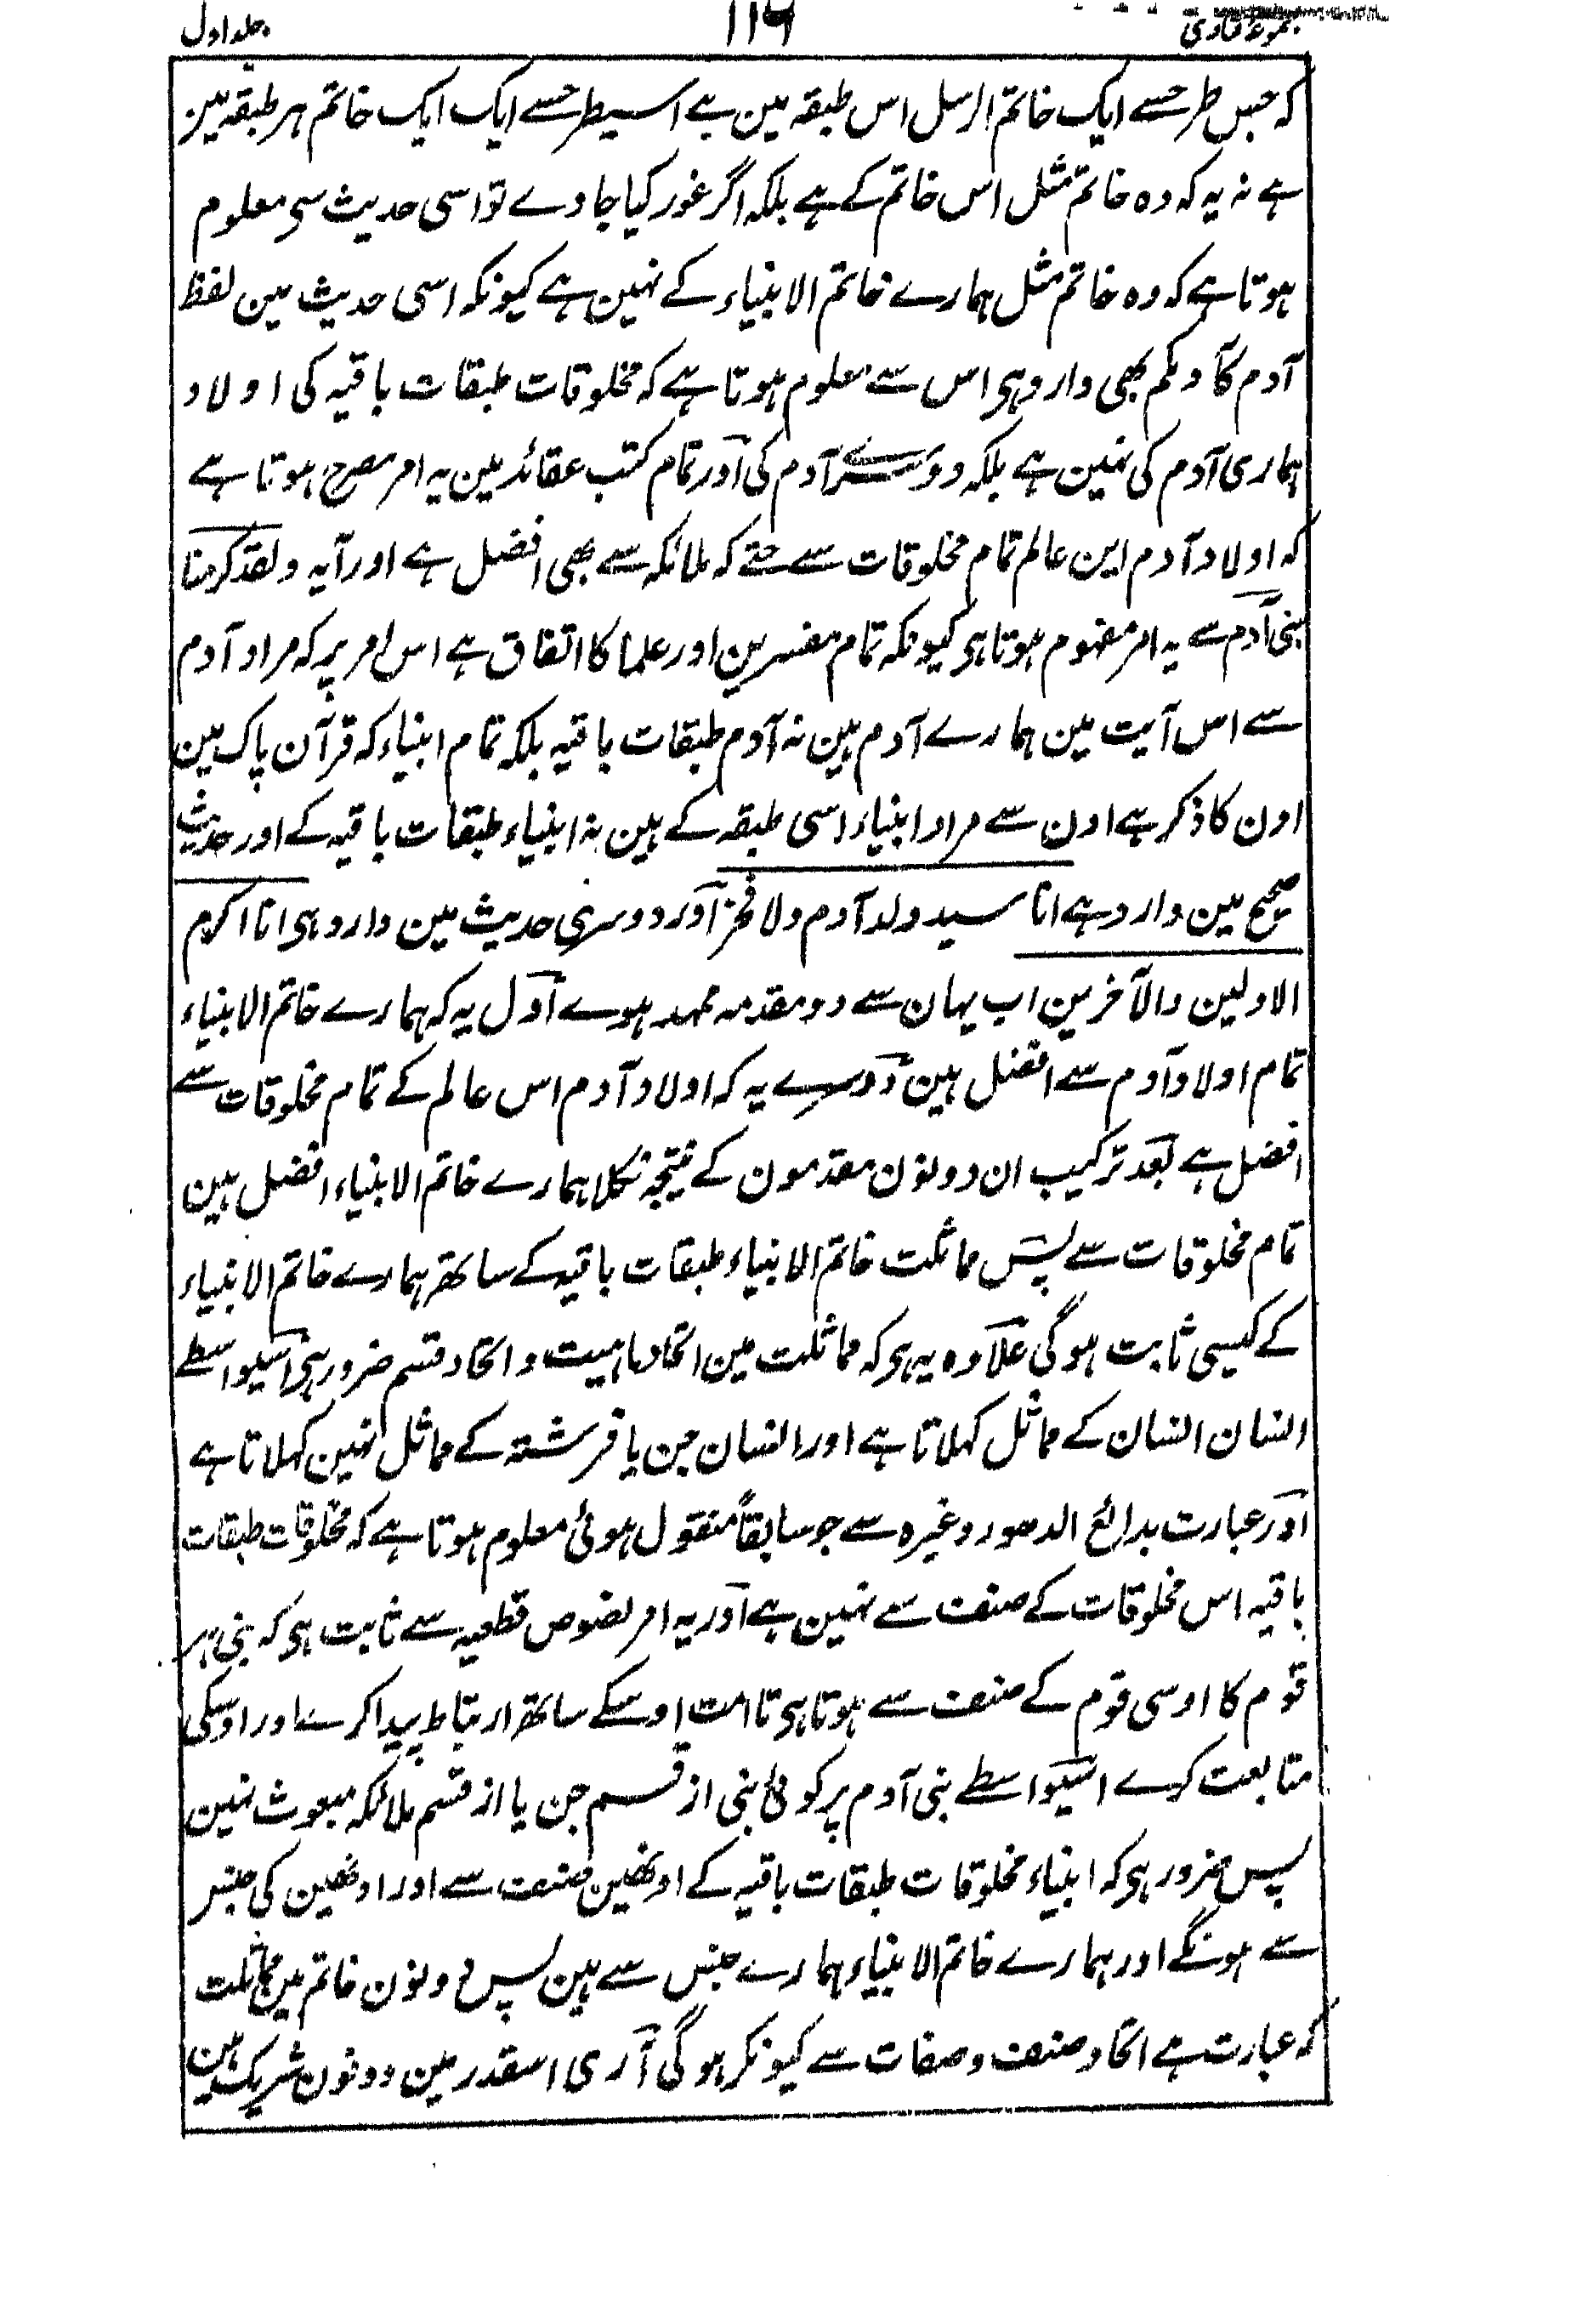 مجموعۂ فتاوی ۱۱۶ جلد اول
کہ جس طرحسے ایک خاتم الرسل اس طبقہ مین ہے اسیطرحسے ایک ایک خاتم ہر طبقہ مین
ہے نہ یہ کہ وہ خاتم مثل اس خاتم کے ہے بلکہ اگر غور کیا جاوے تو اسی حدیث سی معلوم
ہوتا ہے کہ وہ خاتم مثل ہمارے خاتم الانبیاء کے نہین ہے کیونکہ اسی حدیث مین لفظ
آدم کآدمکم بھی وارد ہی اس سے معلوم ہوتا ہے کہ مخلوقات طبقات باقیہ کی اولاد
ہماری آدم کی نہین ہے بلکہ دوسرے آدم کی اور تمام کتب عقائد مین یہ امر مصرح ہوتا ہے
کہ اولاد آدم این عالم تمام مخلوقات سے حتے کہ ملائکہ سے بھی افضل ہے اور آیہ ولقد کرمنا
بنی آدم سے یہ امر مفہوم ہوتا ہی کیونکہ تمام مفسرین اور علما کا اتفاق ہے اس امر پر کہ مراد آدم
سے اس آیت مین ہمارے آدم ہین نہ آدم طبقات باقیہ بلکہ تمام انبیاء کہ قرآن پاک مین
اون کا ذکر ہے اون سے مراد انبیاء اسی طبقہ کے ہین نہ انبیاء طبقات باقیہ کے اور حدیث
صحیح مین وارد ہے انا سید ولد آدم ولا فخر اور دوسری حدیث مین وارد ہی انا اکرم
الاولین والآخرین اب یہان سے دو مقدمہ ممہد ہوے اول یہ کہ ہمارے خاتم الانبیاء
تمام اولاد آدم سے افضل ہین دوسرے یہ کہ اولاد آدم اس عالم کے تمام مخلوقات سے
افضل ہے بعد ترکیب ان دونون مقدمون کے نتیجہ نکلا ہمارے خاتم الانبیاء افضل ہین
تمام مخلوقات سے پس مماثلت خاتم الانبیاء طبقات باقیہ کے ساتھ ہمارے خاتم الانبیاء
کے کیسی ثابت ہوگی علاوہ یہ ہی کہ مماثلت مین اتحاد ماہیت و اتحاد قسم ضرور ہی اسیواسطے
انسان انسان کے مماثل کہلاتا ہے اور انسان جن یا فرشتہ کے مماثل نہین کہلاتا ہے
اور عبارت بدائع الدھور وغیرہ سے جو سابقاً منقول ہوئی معلوم ہوتا ہے کہ مخلوقات طبقات
باقیہ اس مخلوقات کے صنف سے نہین ہے اور یہ امر نصوص قطعیہ سے ثابت ہی کہ نبی ہر
قوم کا اوسی قوم کے صنف سے ہوتا ہی تا امت اوسکے ساتھ ارتباط پیدا کرے اور اوسکی
متابعت کرے اسیواسطے بنی آدم پر کوئی نبی از قسم جن یا از قسم ملائکہ مبعوث نہین
پس ضرور ہی کہ انبیاء مخلوقات طبقات باقیہ کے اونھین صنف سے اور اونھین کی جنس
سے ہونگے اور ہمارے خاتم الانبیاء ہمارے جنس سے ہین پس دونون خاتم مین مماثلت
کہ عبارت ہے اتحاد صنف و صفات سے کیونکر ہوگی آری اسقدر مین دونون شریک ہین